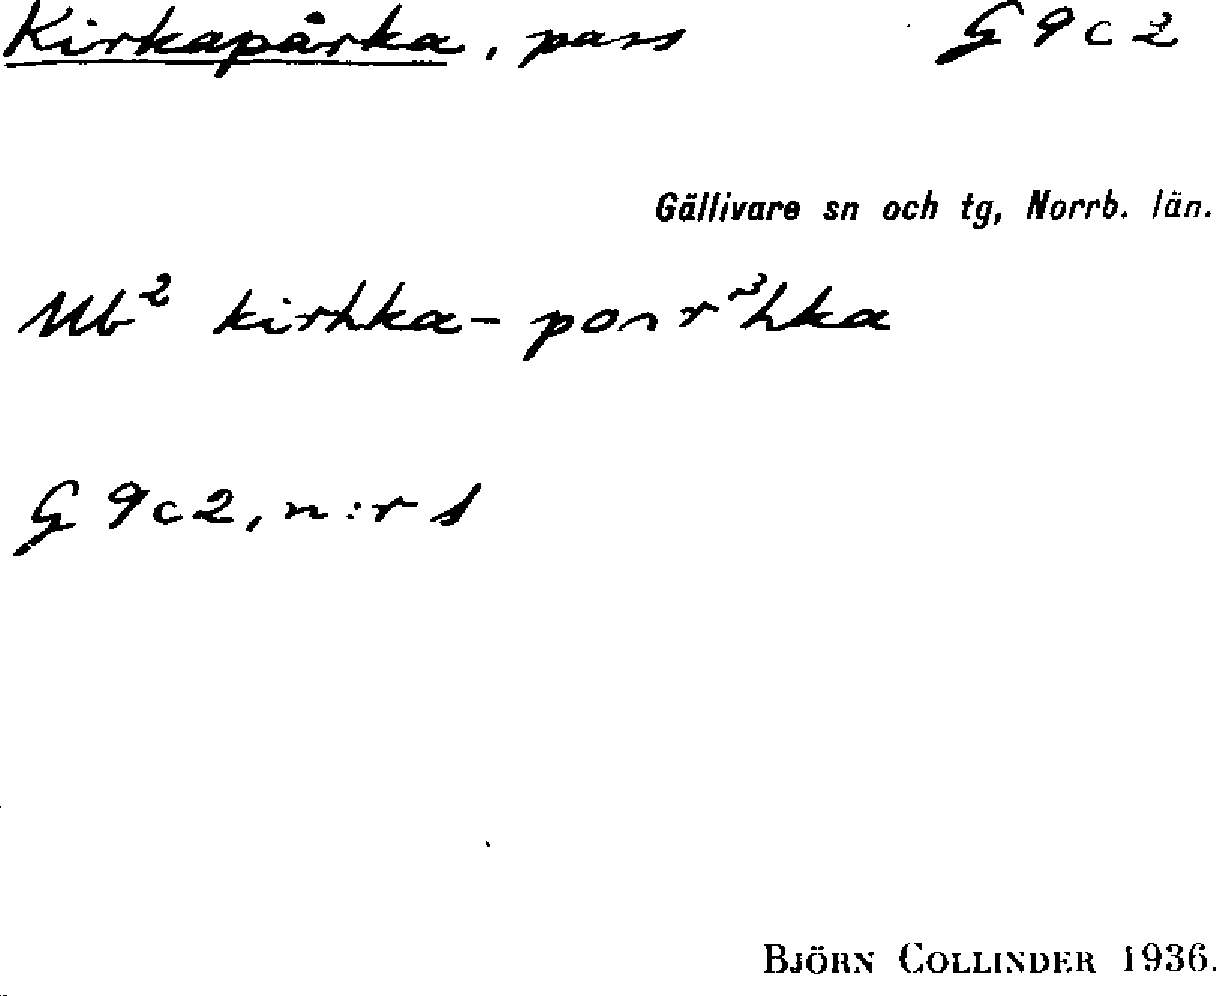 Kirkapårka, pass G 9 c 2
Gällivare sn och tg, Norrb. län.
Ub² kirhka-
G 9c2, n:r 1
BJÖRN COLLINDER 1936.